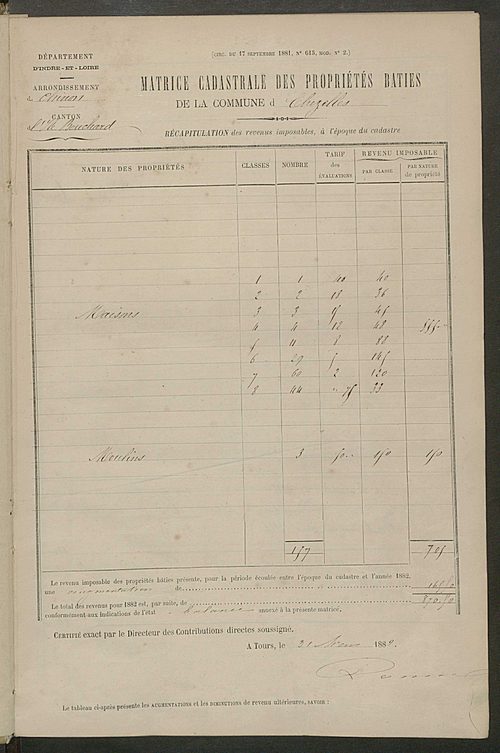 (CIRC. DU 17 SEPTEMBRE 1881, N° 615, MOD. N° 2.)
DÉPARTEMENT
D'INDRE-ET-LOIRE
ARRONDISSEMENT
de Chinon
CANTON
MATRICE CADASTRALE DES PROPRIÉTÉS BATIES
DE LA COMMUNE d Chezelles
RÉCAPITULATION des revenus imposables, à l'époque du cadastre
NATURE DES PROPRIÉTÉS CLASSES NOMBRE TARIF des ÉVALUATIONS REVENU IMPOSABLE PAR CLASSE PAR NATURE de propriété
1 1 40 40
2 2 18 36
Maisons 3 3 15 45
4 4 12 48 555
5 11 8 88
6 29 5 145
7 60 2 120
8 44 " 75 33
Moulins 3 50 150 150
157 705
Le revenu imposable des propriétés bâties présente, pour la période écoulée entre l'époque du cadastre et l'année 1882,
une augmentation de
Le total des revenus pour 1882 est, par suite, de
conformément aux indications de l'état annexé à la présente matrice.
CERTIFIÉ exact par le Directeur des Contributions directes soussigné.
A Tours, le 31 188
Le tableau ci-après présente les AUGMENTATIONS et les DIMINUTIONS de revenu ultérieures, SAVOIR :